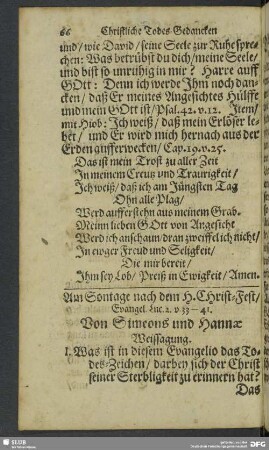 86 Christliche Todes Gedancken
und / wie David / seine Seele zur Ruhe spre-
chen: Was betrübst du dich / meine Seele /
und bist so unruhig in mir? Harre auff
GOtt: Denn ich werde Ihm noch dan-
cken / daß Er meines Angesichtes Hülffe
und mein GOtt ist / Psal. 42. v. 12. Item /
mit Hiob: Ich weiß / daß mein Erlöser le-
bet / und Er wird mich hernach aus der
Erden aufferwecken / Cap. 19. v. 25.
Das ist mein Trost zu aller Zeit
In meinem Creutz und Traurigkeit /
Ich weiß / daß ich am Jüngsten Tag
Ohn alle Plag /
Werd aufferstehn aus meinem Grab.
Meinn lieben GOtt von Angesicht
Werd ich anschaun / dran zweiffel ich nicht /
In ewger Freud und Seligkeit /
Die mir bereit /
Ihm sey Lob / Preiß in Ewigkeit / Amen.
Am Sontage nach dem H. Christ-Fest /
Evangel. Luc. 2. v 33 — 41.
Von Simeons und Hannæ
Weissagung.
1. Was ist in diesem Evangelio das To-
des-Zeichen / darbey sich der Christ
seiner Sterbligkeit zu erinnern hat?
Das
SLUB